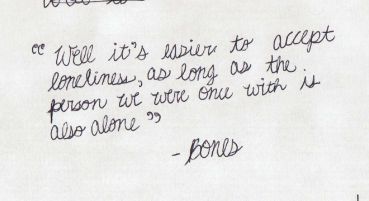 “Well it's easier to accept
loneliness, as long as the
person we were once with is
also alone”
- Bones